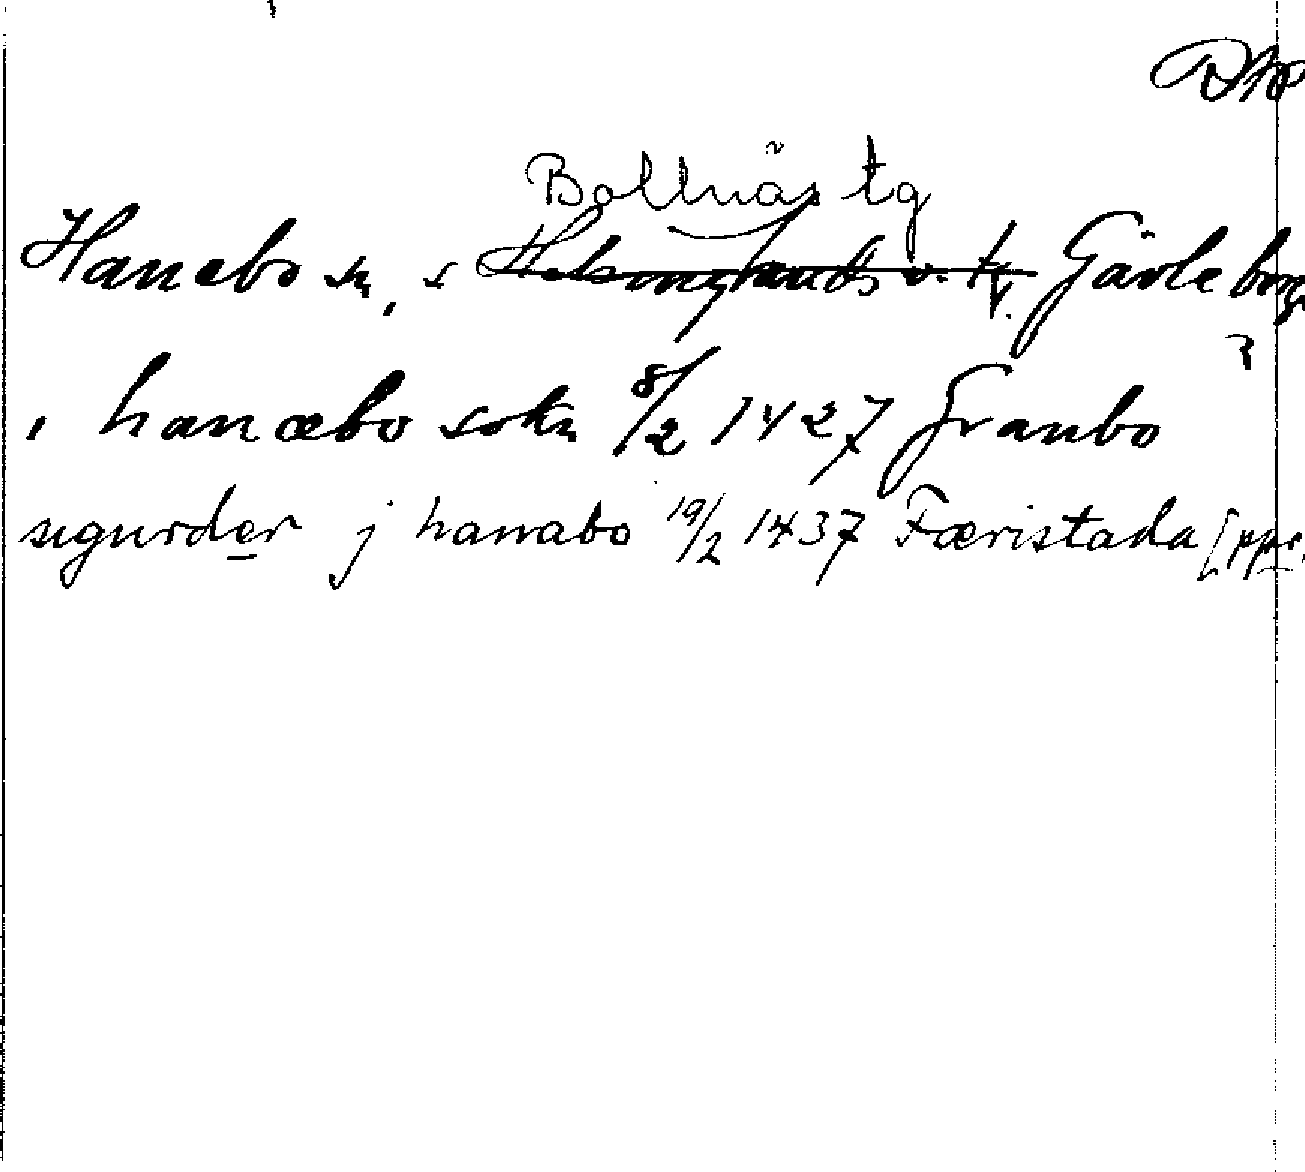 Bollnäs tg
Hanebo sn, s Helsinglands v. tg. Gävleborg
i hanæbo sokn 8/2 1427 Granbo
sigurder j hanabo 19/2 1437 Færistada [ppr.